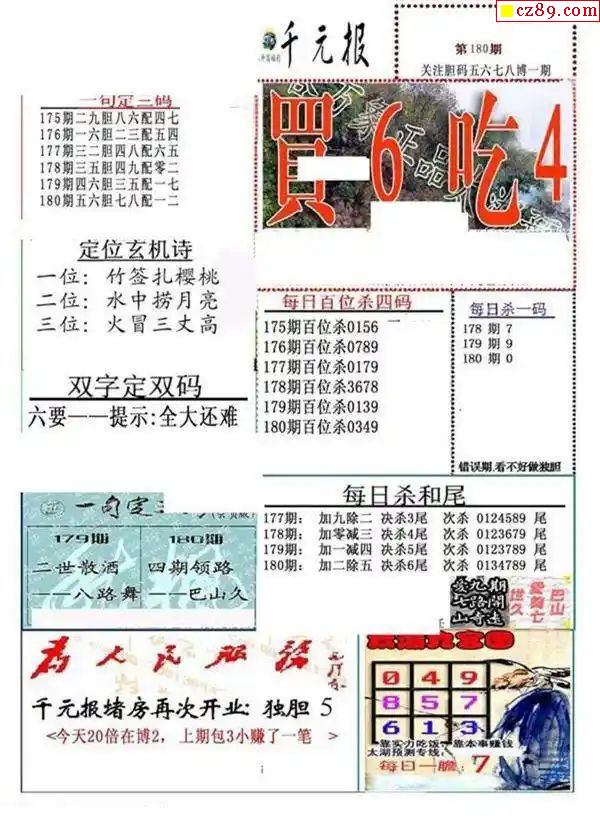 cz89.com
千元报
第180期
关注胆码五六七八博一期
一句定三码
175期二九胆八六配四七
176期一六胆二三配五四
177期三二胆四八配六五
178期三五胆四九配零二
179期四六胆三五配一七
180期五六胆七八配一二
買 6 吃 4
定位玄机诗
一位：竹签扎樱桃
二位：水中捞月亮
三位：火冒三丈高
双字定双码
六要——提示:全大还难
每日百位杀四码
175期百位杀0156
176期百位杀0789
177期百位杀0179
178期百位杀3678
179期百位杀0139
180期百位杀0349
每日杀一码
178 期 7
179 期 9
180 期 0
错误期.看不好做独胆
每日杀和尾
177期： 加九除二 决杀3尾 次杀 0124589 尾
178期： 加零减三 决杀4尾 次杀 0123679 尾
179期： 加一减四 决杀5尾 次杀 0123789 尾
180期： 加二除五 决杀6尾 次杀 0134789 尾
一句定三
179期
二世散酒
——八路舞
180期
四期领路
——巴山久
巴山
世久
为人民服务
千元报堵房再次开业: 独胆 5
<今天20倍在博2，上期包3小赚了一笔 >
0 4 9
8 5 7
6 1 3
靠实力吃饭，靠本事赚钱
太湖预测专线:
每日一胆: 7